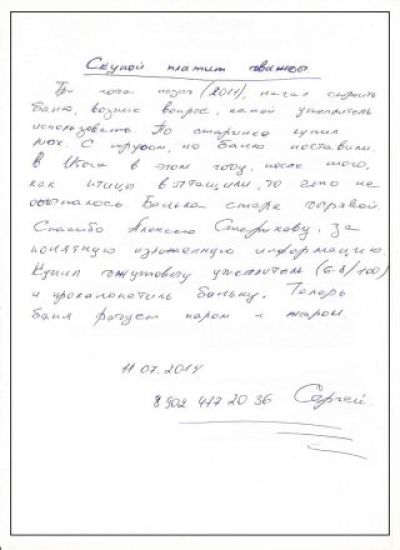 Скупой платит дважды
Три года назад (2011), начал строить
баню, возник вопрос, какой утеплитель
использовать. По старинке купил
мох. С трудом, но баню поставили.
В Итоге в этом году, после того,
как птицы вытащили, то что не
осыпалось Банька стала сырявой.
Спасибо Алексею Старикову, за
понятную изложенную информацию.
Купил джутовый утеплитель (6-8/100)
и проконопатил баньку. Теперь
баня радует паром и жаром
11 07.2014
8 902 477 20 36 Сергей